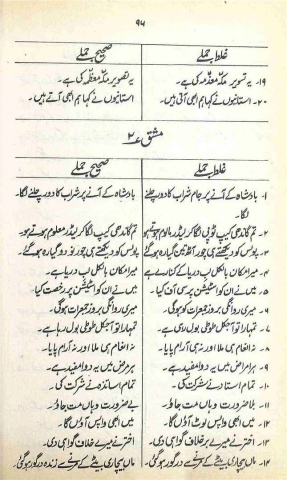 ۹۵
غلط جملے صحیح جملے
۱۹۔ یہ تصویر مکہ معظمہ کی ہے۔ یہ تصویر مکہ معظمہ کی ہے۔
۲۰۔ استانیوں نے کہا ہم ابھی آتی ہیں۔ استانیوں نے کہا ہم ابھی آتے ہیں۔
مشق ۲
غلط جملے صحیح جملے
۱۔ بادشاہ کے آنے پر جام شراب کا دور چلنے بادشاہ کے آنے پر شراب کا دور چلنے لگا۔
لگا۔
۲۔ تم گاندھی کیپ ٹوپی لگا کر لیڈر تم گاندھی کیپ لگا کر لیڈر معلوم ہوتے ہو۔
۳۔ پولس کو دیکھتے ہی چور ہو گئے پولس کو دیکھتے ہی چور نو دو گیارہ ہو گئے۔
۴۔ میرا مکان بالکل لب دریا کے کنارے ہے میرا مکان بالکل لب دریا ہے۔
۵۔ میں نے ان کو اسٹیشن پر سی آف کیا۔ میں نے ان کو اسٹیشن پر رخصت کیا۔
۶۔ میری روانگی بروز جمعرات کو ہوگی۔ میری روانگی بروز جمعرات ہوگی۔
۷۔ تمہارے تو آجکل طوطی بول رہی ہے۔ تمہارا تو آجکل طوطی بول رہا ہے۔
۸۔ نہ انعام ہی ملا اور نہ ہی آرام پایا نہ انعام ہی ملا نہ آرام پایا۔
۹۔ ہر امراض میں یہ دوا مفید ہے۔ ہر مرض میں یہ دوا مفید ہے۔
۱۰۔ تمام استادنے شرکت کی۔ تمام اساتذہ نے شرکت کی۔
۱۱۔ بلا ضرورت وہاں مت جاؤ۔ بے ضرورت وہاں مت جاؤ۔
۱۲۔ میں ابھی واپس لوٹ آؤں گا میں ابھی واپس آؤں گا۔
۱۳۔ اختر نے میرے برخلاف گواہی دی۔ اختر نے میرے خلاف گواہی دی۔
۱۴۔ ماں بیچاری بیٹے کے درگور ہو گئی ماں بیچاری بیٹے کے زندہ درگور ہو گئی۔